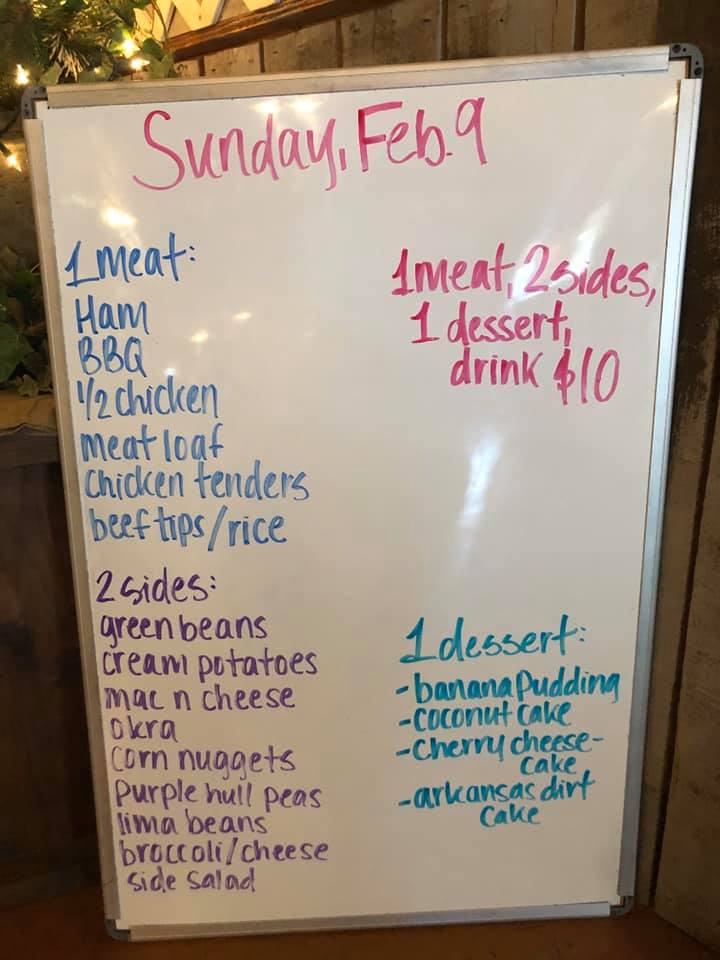 Sunday, Feb. 9
1 meat:
Ham
BBQ
1/2 chicken
meat loaf
chicken tenders
beef tips/rice
2 sides:
green beans
cream potatoes
mac n cheese
okra
corn nuggets
purple hull peas
lima beans
broccoli/cheese
side salad
1 meat, 2 sides,
1 dessert,
drink $10
1 dessert:
-banana Pudding
-coconut cake
-cherry cheese-
cake
-arkansas dirt
cake